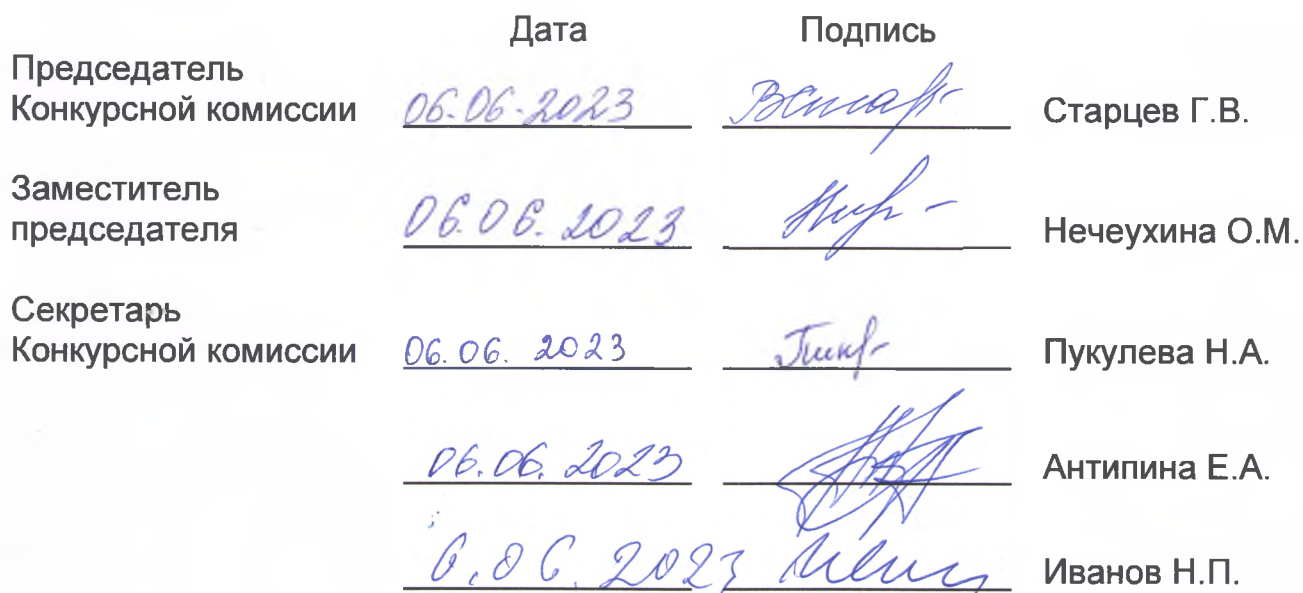 Дата Подпись
Председатель
Конкурсной комиссии 06.06.2023 Старцев Г.В.
Заместитель
председателя 06.06.2023 Нечеухина О.М.
Секретарь
Конкурсной комиссии 06.06.2023 Пукулева Н.А.
06.06.2023 Антипина Е.А.
6.06.2023 Иванов Н.П.